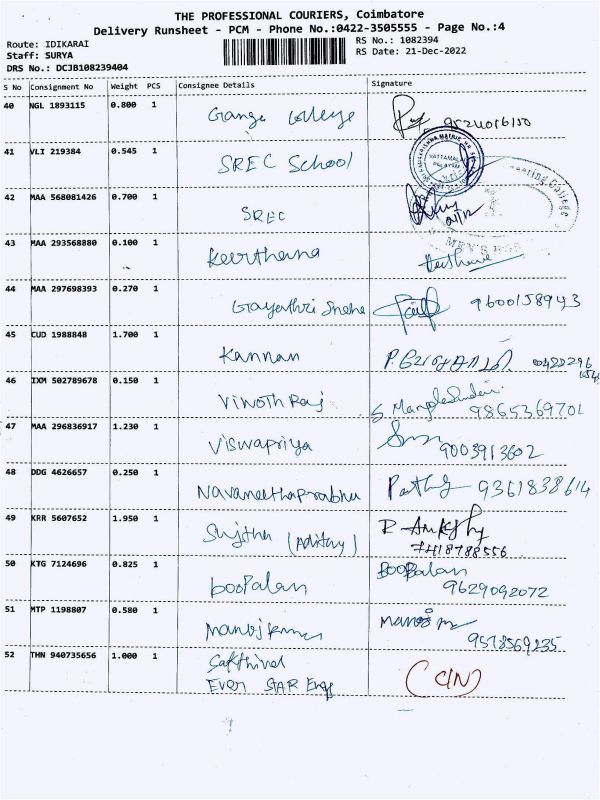 THE PROFESSIONAL COURIERS, Coimbatore
Delivery Runsheet - PCM - Phone No.:0422-3505555 - Page No.:4
Route: IDIKARAI
RS No.: 1082394
Staff: SURYA
RS Date: 21-Dec-2022
DRS No.: DCJB108239404
S No Consignment No Weight PCS Consignee Details Signature
40 NGL 1893115 0.800 1 Ganga College
41 VLI 219384 0.545 1 SREC School
42 MAA 568081426 0.700 1 SREC
43 MAA 293568880 0.100 1 Keerthana
44 MAA 297698393 0.270 1 Gayathri Sneha 9600158943
45 CUD 1988848 1.700 1 Kannan
46 IXM 502789678 0.150 1 Vinoth Raj 9865369701
47 MAA 296836917 1.230 1 Viswapriya 9003913602
48 DDG 4626657 0.250 1 Navaneethaprabhu 9361838614
49 KRR 5607652 1.950 1 Sujitha 7418788556
50 KTG 7124696 0.825 1 booPalan BooPalan
9629092072
51 MTP 1198807 0.580 1 Manojkumar
9578569235
52 THN 940735656 1.000 1 Sakthivel
Ever STAR Engg